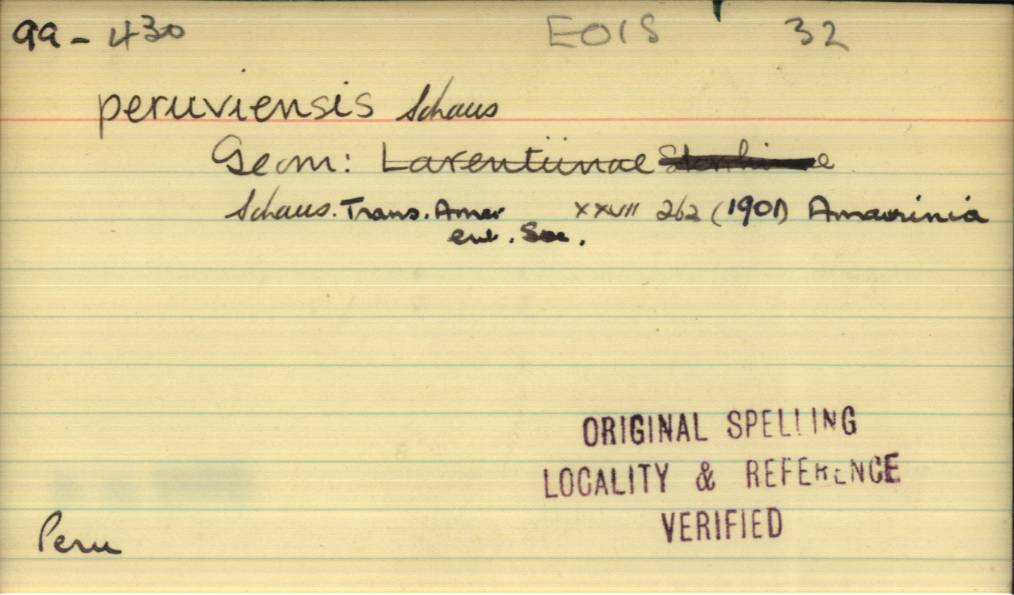 99-430 EOIS 32
peruviensis Schaus
Geom: Larentiinae
Schaus. Trans. Amer XXVII 262 (1901) Amaurinia
ent. Soc.
ORIGINAL SPELLING
LOCALITY & REFERENCE
VERIFIED
Peru